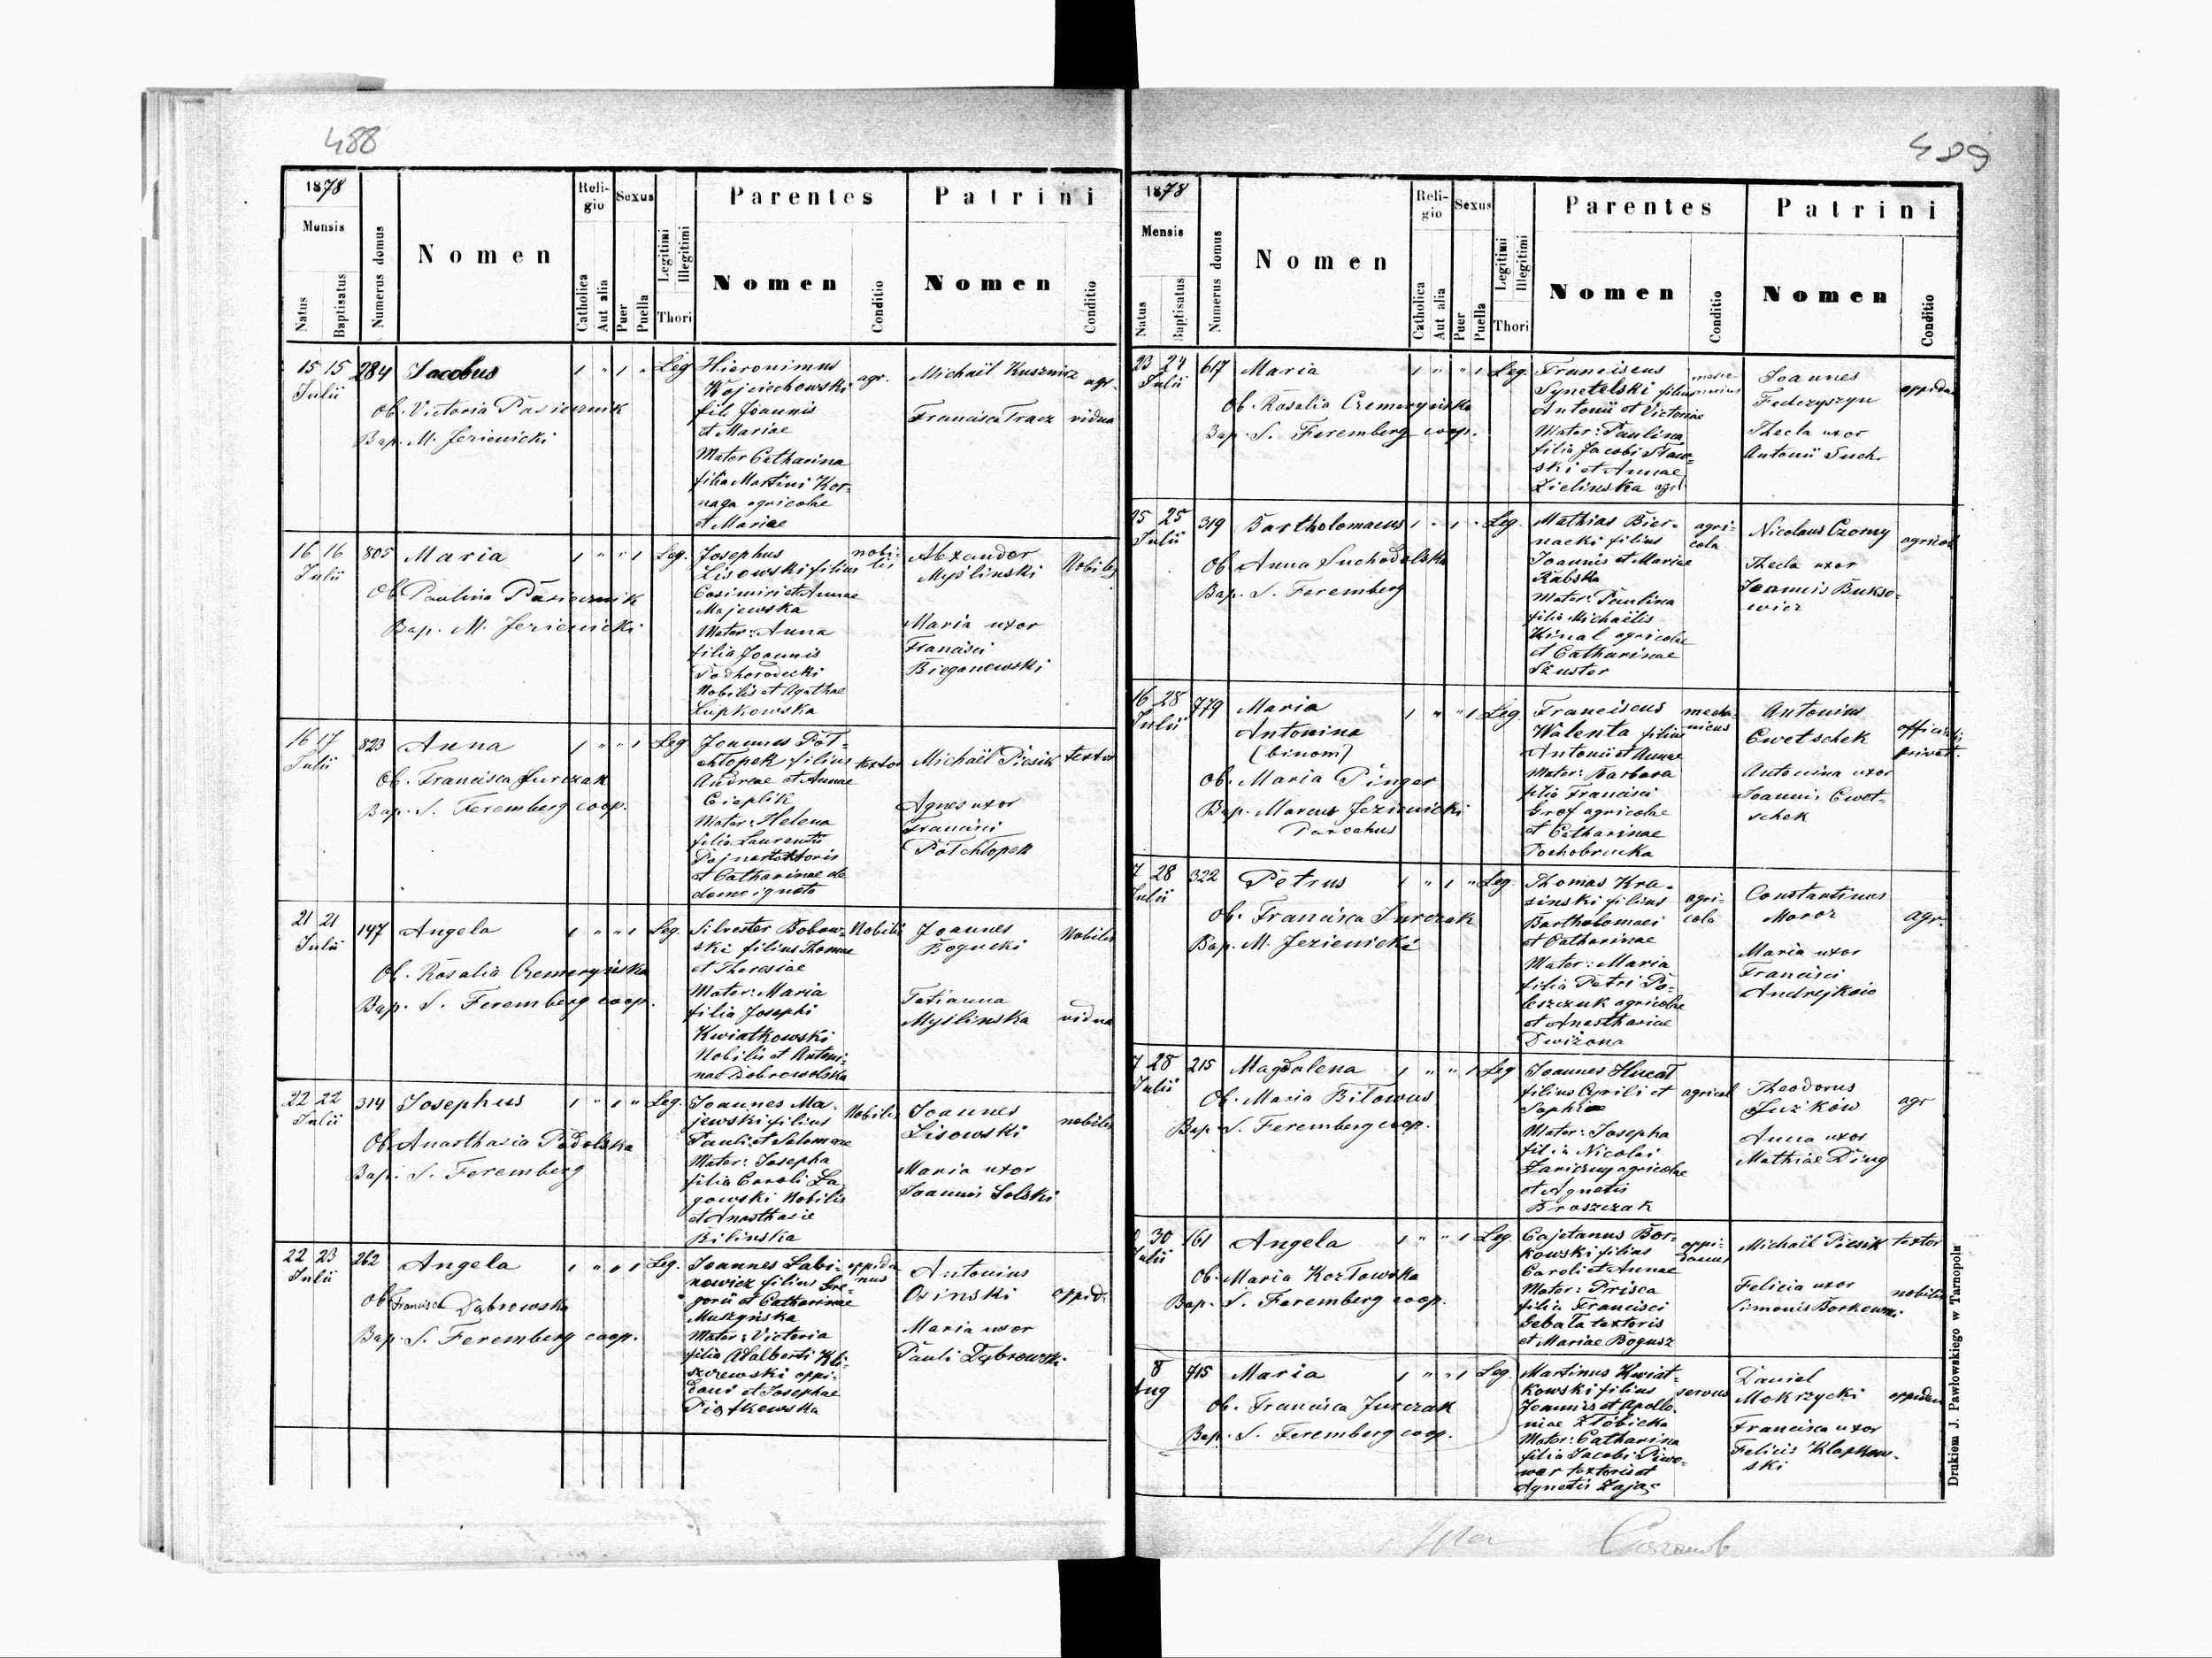 488
1878
Mensis
Natus
Baptisatus
Numerus domus
Nomen
Religio
Catholica
Aut alia
Sexus
Puer
Puella
Legitimi
Illegitimi
Thori
Parentes
Nomen
Conditio
Patrini
Nomen
Conditio
15 15 284 Jacobus 1 " 1 " Leg
Julii
Ob. Victoria Pasiecznik
Bap. M. Jezienicki
Hieronimus
Wojciechowski agr.
fil. Joannis
et Mariae
Mater Catharina
filia Martini Kor-
naga agricolae
et Mariae
Michaël Kusznierz agr.
Francisca Tracz vidua
16 16 805 Maria 1 " " 1 Leg.
Julii
Ob Paulina Pasiecznik
Bap. M. Jezienicki
Josephus nobi-
Lisowski filius lis
Casimiri et Annae
Majewska
Mater: Anna
filia Joannis
Podhorodecki
Nobilis et Agathae
Łupkowska
Alexander
Myślinski Nobilis
Maria uxor
Francisci
Bieganowski
16 17 823 Anna 1 " " 1 Leg
Julii
Ob. Francisca Jurczak
Bap. S. Feremberg coop.
Joannes Poł-
chłopek filius textor
Andreae et Annae
Cieplik
Mater: Helena
filia Laurentii
Pajnar textoris
et Catharinae de
domo ignota
Michaël Piesik textor
Agnes uxor
Francisci
Połchłopek
21 21 147 Angela 1 " " 1 Leg.
Julii
Ob. Rosalia Czemeryńska
Bap. S. Feremberg coop.
Silvester Bobow- Nobilis
ski filius Thomae
et Theresiae
Mater: Maria
filia Josephi
Kwiatkowski
Nobilis et Antoni-
nae Dobrowolska
Joannes
Bogucki Nobilis
Tatianna
Myślinska vidua
22 22 314 Josephus 1 " 1 " Leg.
Julii
Ob. Anasthasia Podolska
Bap. S. Feremberg
Joannes Ma-
jewski filius Nobilis
Pauli et Salomeae
Mater: Josepha
filia Caroli Ła-
gowski Nobilis
et Anasthasie
Bilinska
Joannes
Lisowski nobilis
Maria uxor
Joannis Solski
22 23 262 Angela 1 " " 1 Leg.
Julii
Ob Francisca Dąbrowska
Bap. S. Feremberg coop.
Joannes Sabi- oppida
nowicz filius Gre- nus
gorii et Catharinae
Muszyńska
Mater: Victoria
filia Adalberti Kli-
szczewski oppi-
dani et Josephae
Piątkowska
Antonius
Osinski oppid.
Maria uxor
Pauli Dąbrowski
489
1878
Mensis
Natus
Baptisatus
Numerus domus
Nomen
Religio
Catholica
Aut alia
Sexus
Puer
Puella
Legitimi
Illegitimi
Thori
Parentes
Nomen
Conditio
Patrini
Nomen
Conditio
23 24 617 Maria 1 " " 1 Leg.
Julii
Ob. Rosalia Czemeryńska
Bap. S. Feremberg coop.
Franciscus
Synetelski filius
Antonii et Victoriae
Mater: Paulina
filia Jacobi Staw-
ski et Annae
Zielinska agr.
Joannes
Fedczyszyn
Thecla uxor
Antonii Such.
25 25 319 Bartholomaeus 1 " 1 " Leg.
Julii
Ob Anna Suchodolska
Bap. S. Feremberg
Mathias Bier- agri-
nacki filius cola
Joannis et Mariae
Rabska
Mater: Paulina
filia Michaëlis
Kinal agricolae
et Catharinae
Szuster
Nicolaus Czorny agricol
Thecla uxor
Joannis Bukso-
wicz
16 28 779 Maria 1 " " 1 Leg.
Julii
Antonina
(binom)
Ob. Maria Pinger
Bap. Marcus Jezienicki
Parochus
Franciscus mecha-
Walenta filius nicus
Antonii et Annae
Mater: Barbara
filia Francisci
Grof agricolae
et Catharinae
Pochobrucka
Antonius
Cwetschek
privat.
Antonina uxor
Joannis Cwet-
schek
7 28 322 Petrus 1 " 1 " Leg.
Julii
Ob. Francisca Jurczak
Bap. M. Jezienicki
Thomas Kra- agri-
sinski filius cola
Bartholomaei
et Catharinae
Mater: Maria
filia Petri Po-
leszczuk agricolae
et Anasthasiae
Dwizona
Constantinus
Moroz agr.
Maria uxor
Francisci
Andrejkoio
7 28 215 Magdalena 1 " " 1 Leg
Julii
Ob. Maria Biłowus
Bap. S. Feremberg coop.
Joannes Hucał
filius Cyrili et agricol
Sophiae
Mater: Josepha
filia Nicolai
Zariczny agricolae
et Agnetis
Broszczak
Theodorus
Juźków agr
Anna uxor
Mathiae Ding
30 161 Angela 1 " " 1 Leg.
Julii
Ob. Maria Kozłowska
Bap. S. Feremberg coop.
Cajetanus Bor- oppi-
kowski filius danus
Caroli et Annae
Mater: Prisca
filia Francisci
Gebała textoris
et Mariae Bogusz
Michaël Piesik textor
Felicia uxor nobilis
Simonis Borkowski
8 715 Maria 1 " " 1 Leg.
Aug
Ob. Francisca Jurczak
Bap. S. Feremberg coop.
Martinus Kwiat-
kowski filius servus
Joannis et Apollo-
niae Złobicka
Mater: Catharina
filia Jacobi Piwo-
war textoris et
Agnetis Zając
Daniel
Mokrzycki oppidan
Francisca uxor
Felicis Klapkow-
ski
Drukiem J. Pawłowskiego w Tarnopolu